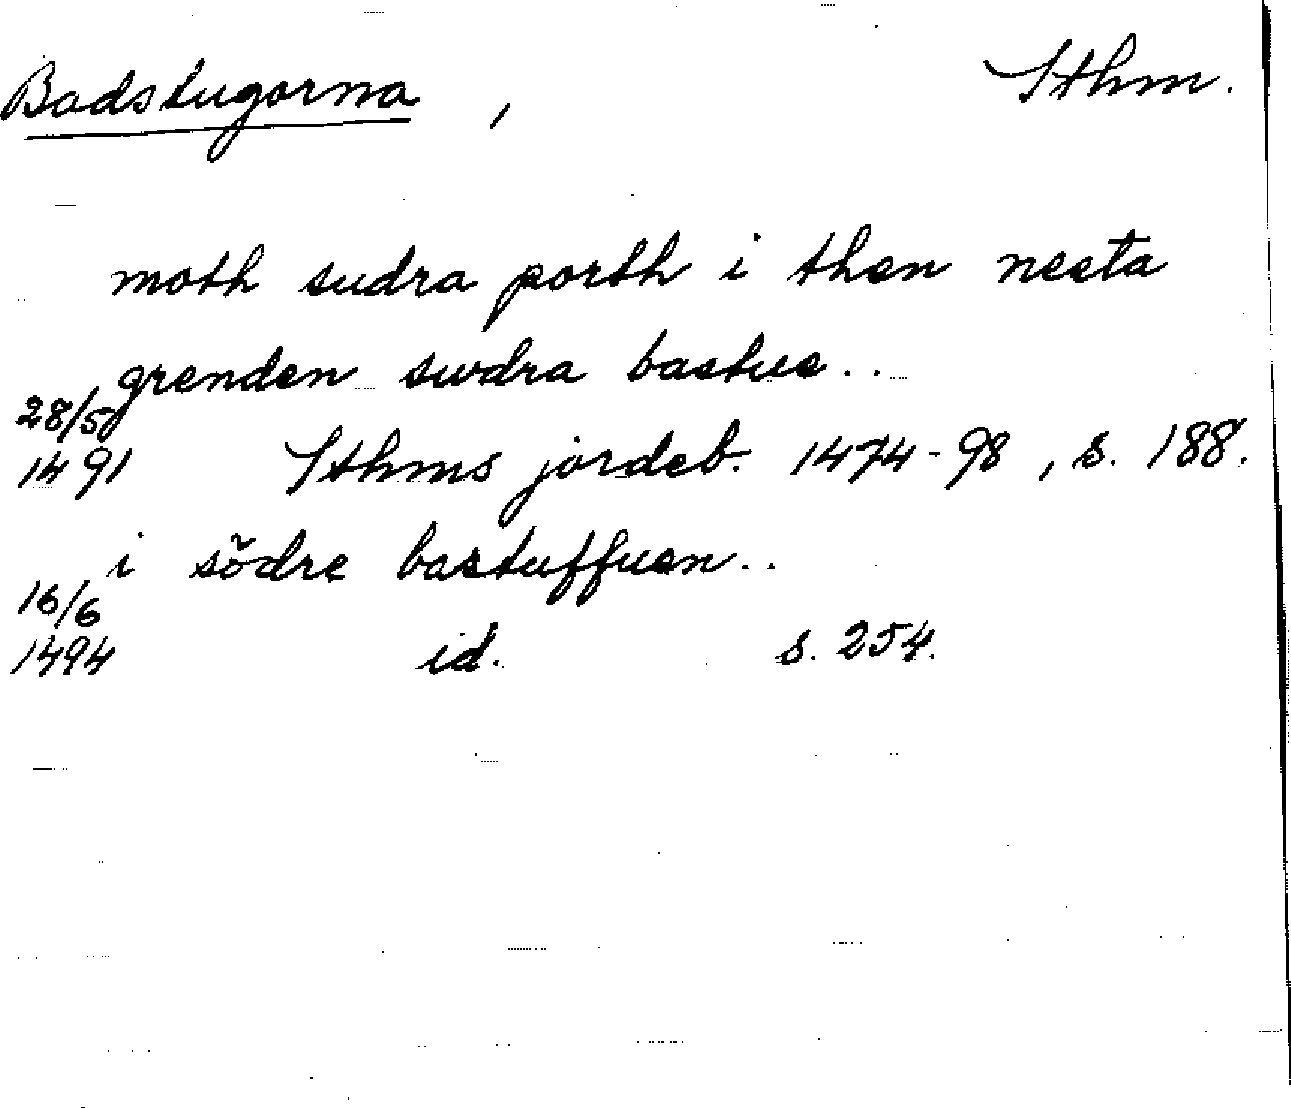 Badstugorna , Sthm.
moth sudra porth i then nesta
grenden swdra bastue..
28/5
1491 Sthms jordeb. 1474-98, s. 188.
i södre bastuffuen..
16/6
1494 id. s. 254.